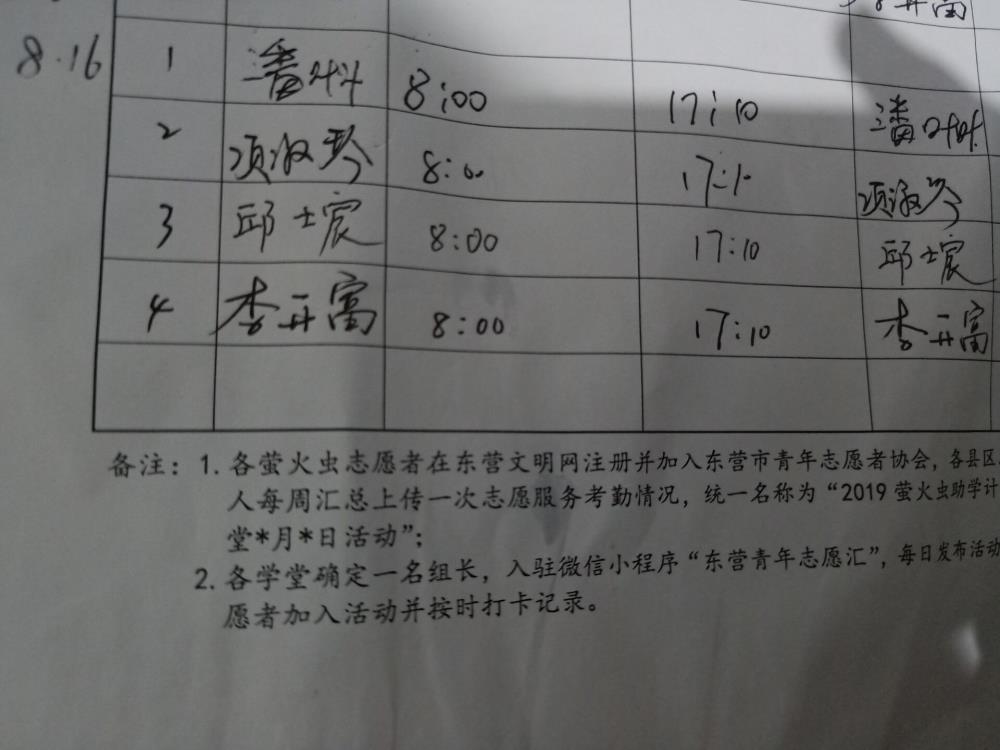 8.16 1 潘叶 8:00 17:10 潘叶
2 项淑琴 8:00 17:10 项淑琴
3 邱士宸 8:00 17:10 邱士宸
4 李开富 8:00 17:10 李开富
备注：1. 各萤火虫志愿者在东营文明网注册并加入东营市青年志愿者协会，各县区
人每周汇总上传一次志愿服务考勤情况，统一名称为“2019 萤火虫助学计
堂*月*日活动”；
2. 各学堂确定一名组长，入驻微信小程序“东营青年志愿汇”，每日发布活动
愿者加入活动并按时打卡记录。